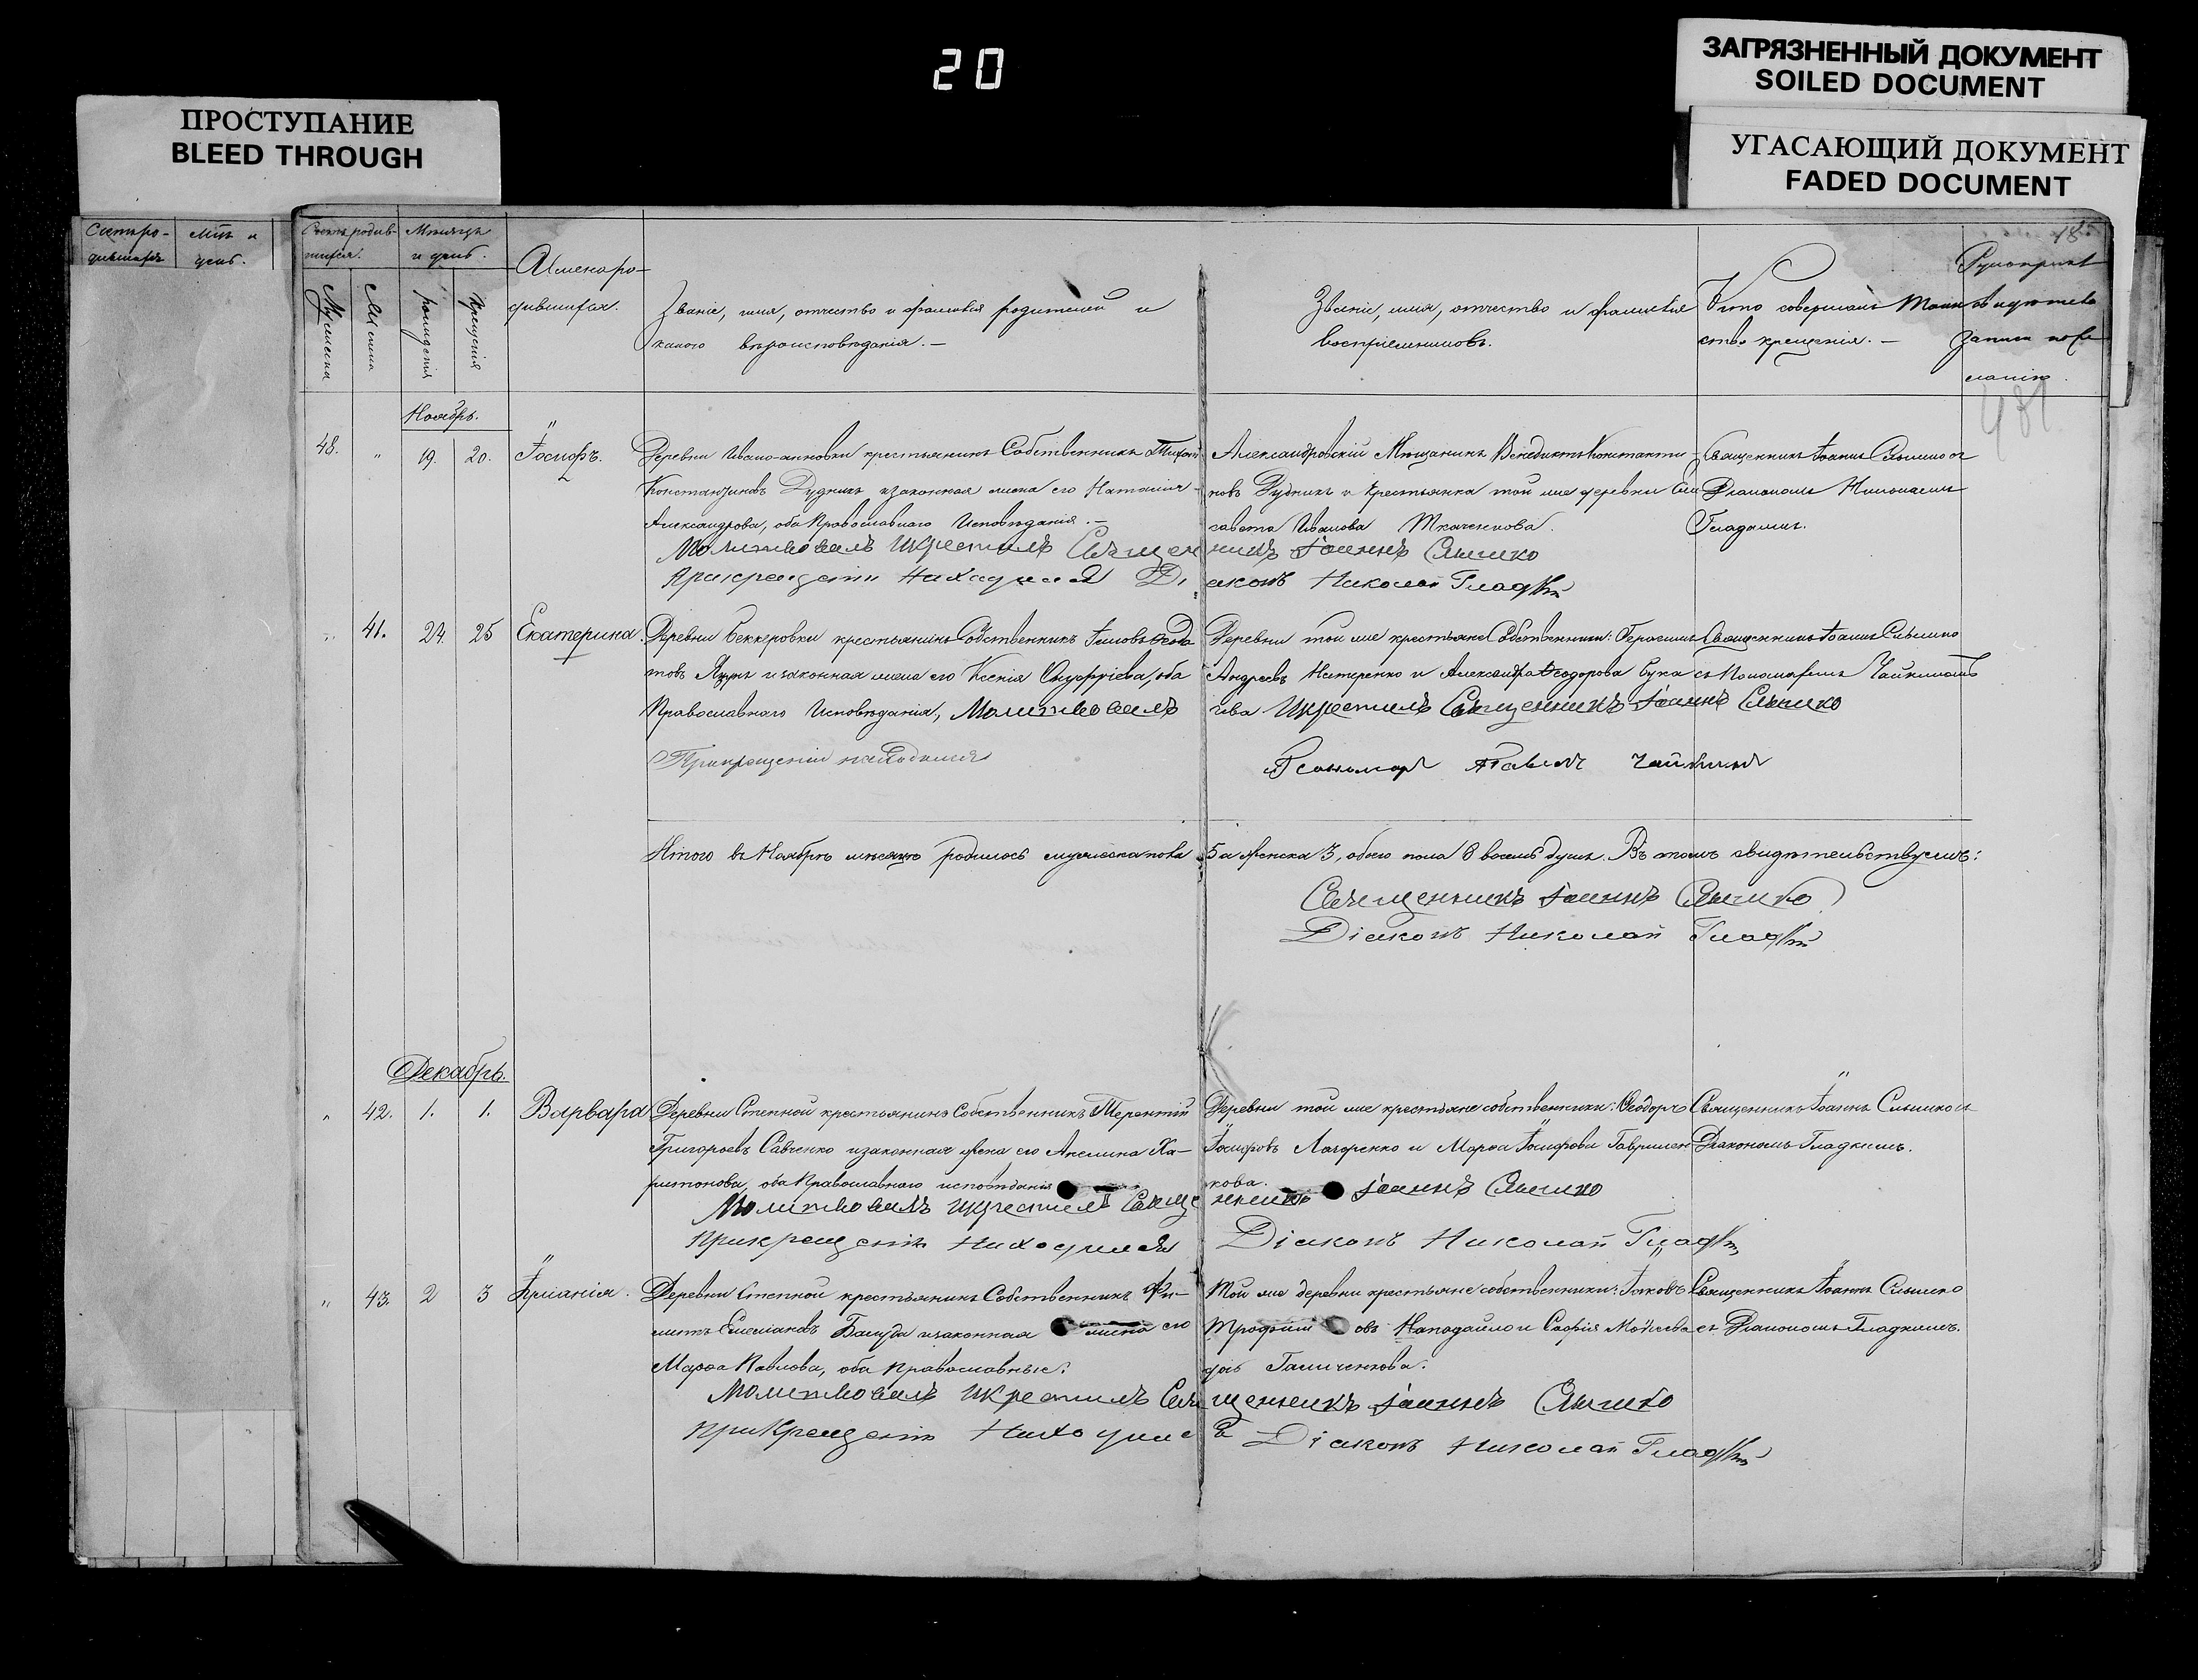 20
ПРОСТУПАНИЕ
BLEED THROUGH
ЗАГРЯЗНЕННЫЙ ДОКУМЕНТ
SOILED DOCUMENT
УГАСАЮЩИЙ ДОКУМЕНТ
FADED DOCUMENT
Счетъ родив-
шихся.
Мѣсяцъ
и день.
Мужеска
Женска
рожденія
крещенія
Имена ро-
дившихся.
Званіе, имя, отчество и фамилія родителей и
какого вѣроисповѣданія. —
Званіе, имя, отчество и фамилія
воспріемниковъ.
Кто совершалъ Таин
ство крещенія. —
Рукоприкл
свидѣтеле
записи по же
ланію.
481
Ноябрь.
48. " 19. 20. Іосифъ.
Деревни Ивано-анновки крестьянинъ Собственникъ Тихонъ
Константиновъ Дудникъ изаконная жена его Наталія
Александрова, оба Православнаго Исповѣданія. —
Александровскій Мѣщанинъ Венедиктъ Константи-
новъ Дудникъ и крестьянка той же деревни Ели
савета Иванова Ткаченкова.
Священникъ Іоаннъ Слышко съ
Діакономъ Николаемъ
Гладкимъ.
Молитвовалъ Икрестилъ Священникъ Іоаннъ Слышко
Прикрещеніи Находился Діаконъ Николай Гладкій
" 41. 24. 25 Екатерина.
Деревни Беккеровки крестьянинъ Собственникъ Іаковъ Ѳедо
товъ Яцунъ и законная жена его Ксенія Онуфріева, оба
Православнаго Исповѣданія,
Деревни той же крестьяне Собственники: Герасимъ
Андреевъ Нетеренко и Александра Ѳеодорова Бука
чева
Священникъ Іоаннъ Слышко
съ Пономаремъ Чайкинымъ
Молитвовалъ Икрестилъ Священникъ Іоаннъ Слышко
Прикрещеніи находился Пономарь Павелъ Чайкинъ
Итого въ Ноябрѣ мѣсяцѣ родилось мужеска пола 5 а женска 3, обоего пола 8 восемь душъ. Въ томъ свидѣтельствуемъ:
Священникъ Іоаннъ Слышко
Діаконъ Николай Гладкій
Декабрь.
" 42. 1. 1. Варвара
Деревни Степной крестьянинъ Собственникъ Терентій
Григорьевъ Савченко изаконная жена его Акелина Ха-
ритонова, оба Православнаго исповѣданія
Деревни той же крестьяне собственники: Ѳеодоръ
Іосифовъ Лазоренко и Марѳа Іосифова Гаврилен
кова.
Священникъ Іоаннъ Слышко съ
Діакономъ Гладкимъ.
Молитвовалъ икрестилъ Священникъ Іоаннъ Слышко
Прикрещеніи Находился Діаконъ Николай Гладкій
" 43. 2 3 Іуліанія.
Деревни Степной крестьянинъ Собственникъ Фи-
липъ Емельяновъ изаконная жена его
Марѳа Павлова, оба Православные.
Той же деревни крестьяне собственники: Іаковъ
Трофимовъ Наподайло и Софія Моѵсеева
Галиченкова.
Священникъ Іоаннъ Слышко
съ Діакономъ Гладкимъ.
Молитвовалъ Икрестилъ Священникъ Іоаннъ Слышко
ПриКрещеніи Находился Діаконъ Николай Гладкій